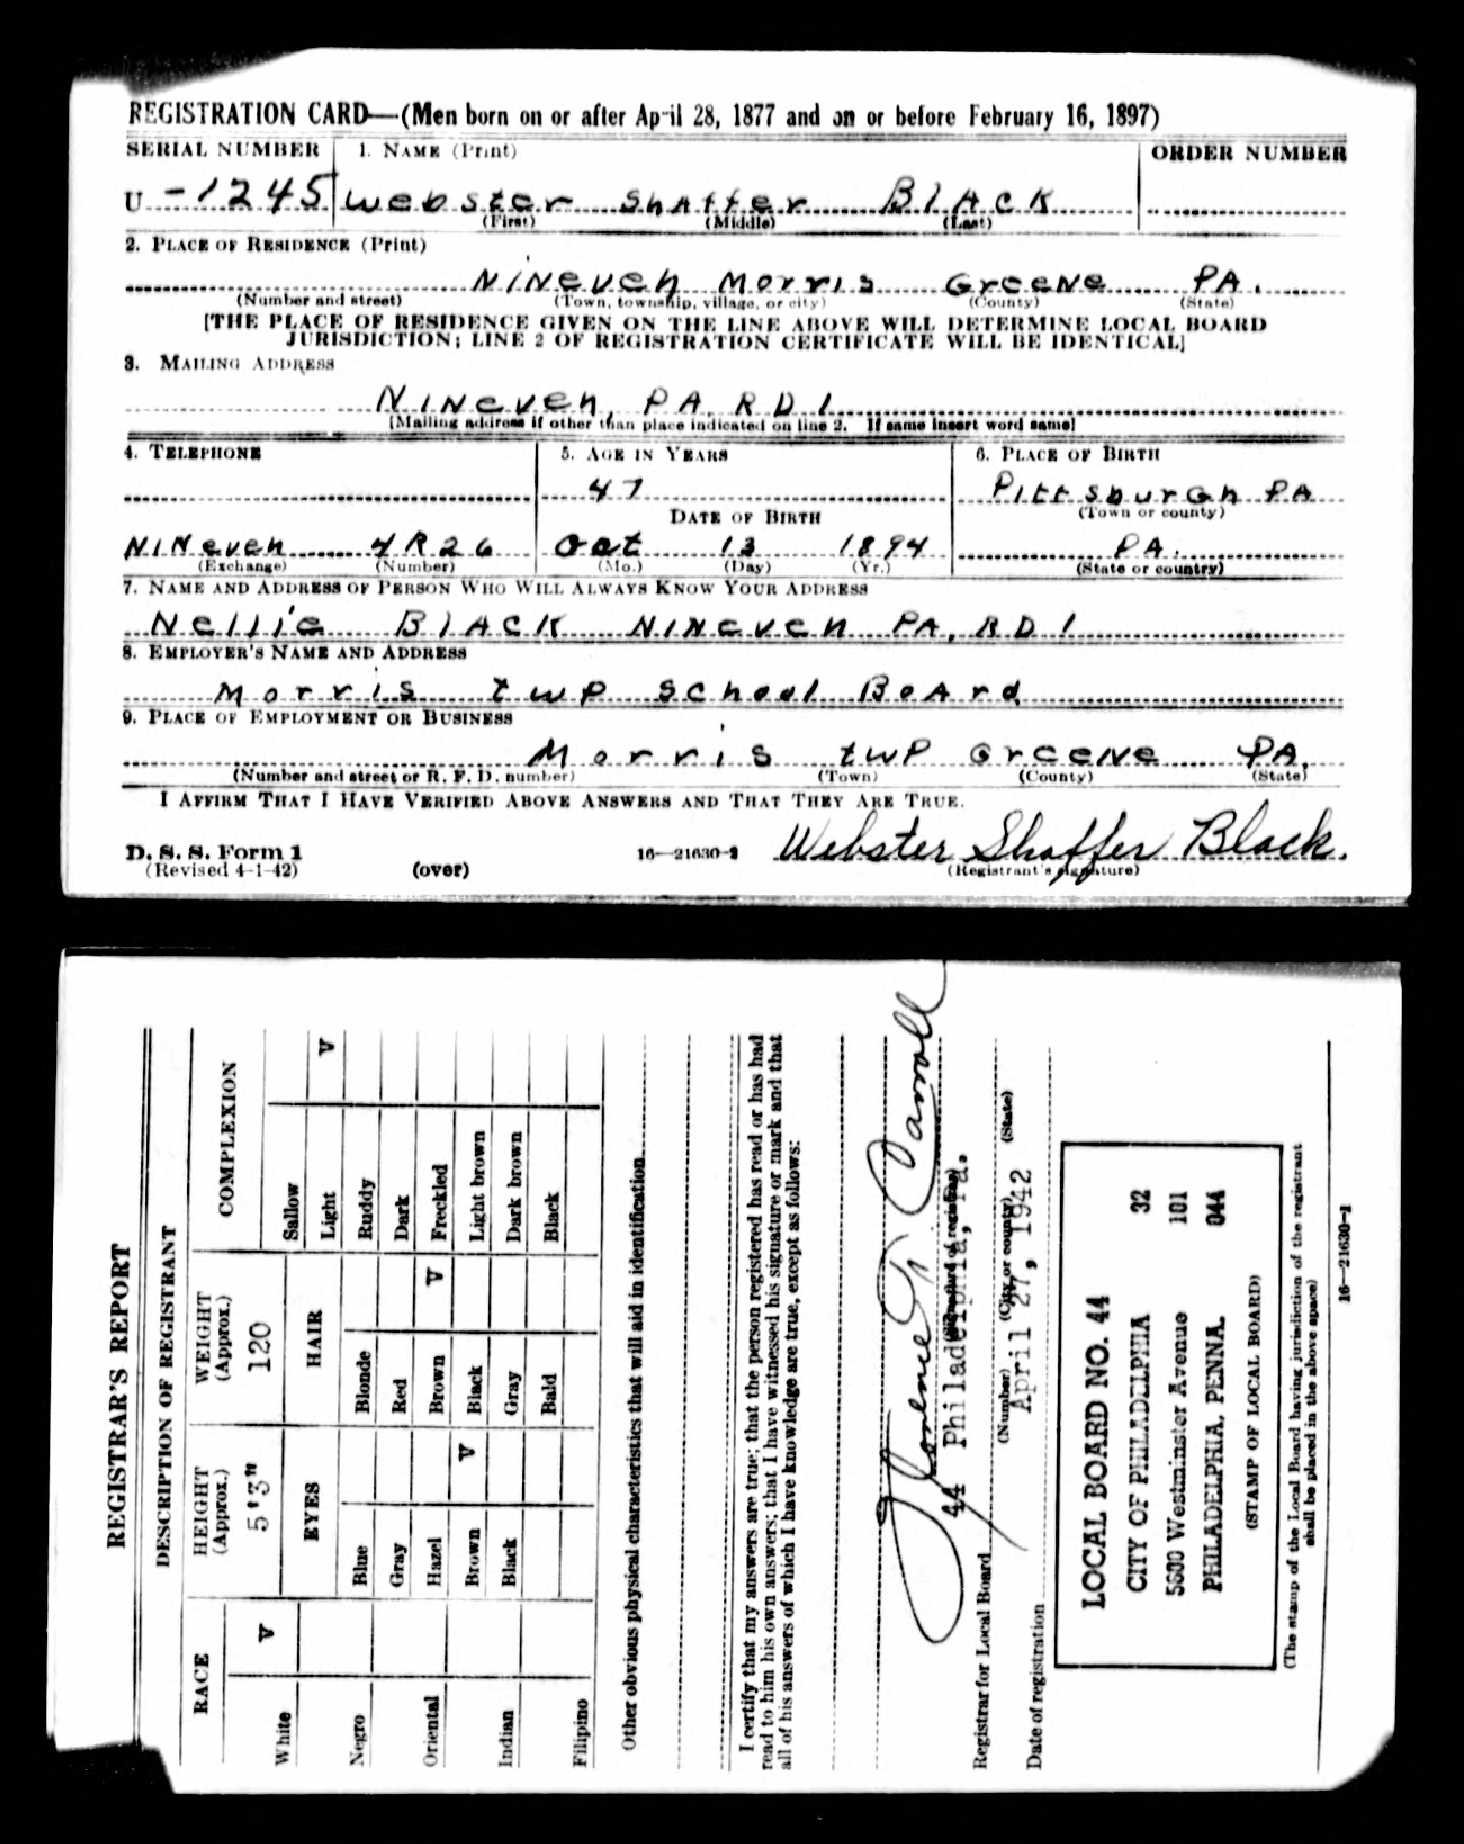 REGISTRATION CARD—(Men born on or after April 28, 1877 and on or before February 16, 1897)
SERIAL NUMBER 1. NAME (Print) ORDER NUMBER
U -1245 Webster Shaffer Black
(First) (Middle) (Last)
2. PLACE OF RESIDENCE (Print)
Nineveh Morris Greene PA.
(Number and street) (Town, township, village, or city) (County) (State)
[THE PLACE OF RESIDENCE GIVEN ON THE LINE ABOVE WILL DETERMINE LOCAL BOARD
JURISDICTION; LINE 2 OF REGISTRATION CERTIFICATE WILL BE IDENTICAL]
3. MAILING ADDRESS
Nineveh, PA. R D 1
[Mailing address if other than place indicated on line 2. If same insert word same]
4. TELEPHONE 5. AGE IN YEARS 6. PLACE OF BIRTH
47 Pittsburgh PA
DATE OF BIRTH (Town or county)
Nineveh 4R26 Oct 13 1894 PA.
(Exchange) (Number) (Mo.) (Day) (Yr.) (State or country)
7. NAME AND ADDRESS OF PERSON WHO WILL ALWAYS KNOW YOUR ADDRESS
Nellie Black Nineveh PA, R D 1
8. EMPLOYER'S NAME AND ADDRESS
Morris twp School Board
9. PLACE OF EMPLOYMENT OR BUSINESS
Morris twp Greene PA.
(Number and street or R. F. D. number) (Town) (County) (State)
I AFFIRM THAT I HAVE VERIFIED ABOVE ANSWERS AND THAT THEY ARE TRUE.
D. S. S. Form 1
(Revised 4-1-42) (over) 16—21630-1 Webster Shaffer Black.
(Registrant's signature)
REGISTRAR'S REPORT
DESCRIPTION OF REGISTRANT
RACE HEIGHT (Approx.) WEIGHT (Approx.) COMPLEXION
White V 5'3" 120 Sallow
EYES HAIR Light V
Negro Blue Blonde Ruddy
Gray Red Dark
Oriental Hazel Brown V Freckled
Brown V Black Light brown
Indian Black Gray Dark brown
Bald Black
Filipino
Other obvious physical characteristics that will aid in identification
I certify that my answers are true; that the person registered has read or has had
read to him his own answers; that I have witnessed his signature or mark and that
all of his answers of which I have knowledge are true, except as follows:
Carroll
(Signature of registrar)
Registrar for Local Board 44 Philadelphia, Pa.
(Number) (City or county) (State)
Date of registration April 27, 1942
LOCAL BOARD NO. 44 32
CITY OF PHILADELPHIA 101
Westminster Avenue 044
PHILADELPHIA, PENNA.
(STAMP OF LOCAL BOARD)
(The stamp of the Local Board having jurisdiction of the registrant
shall be placed in the above space)
16—21630-1